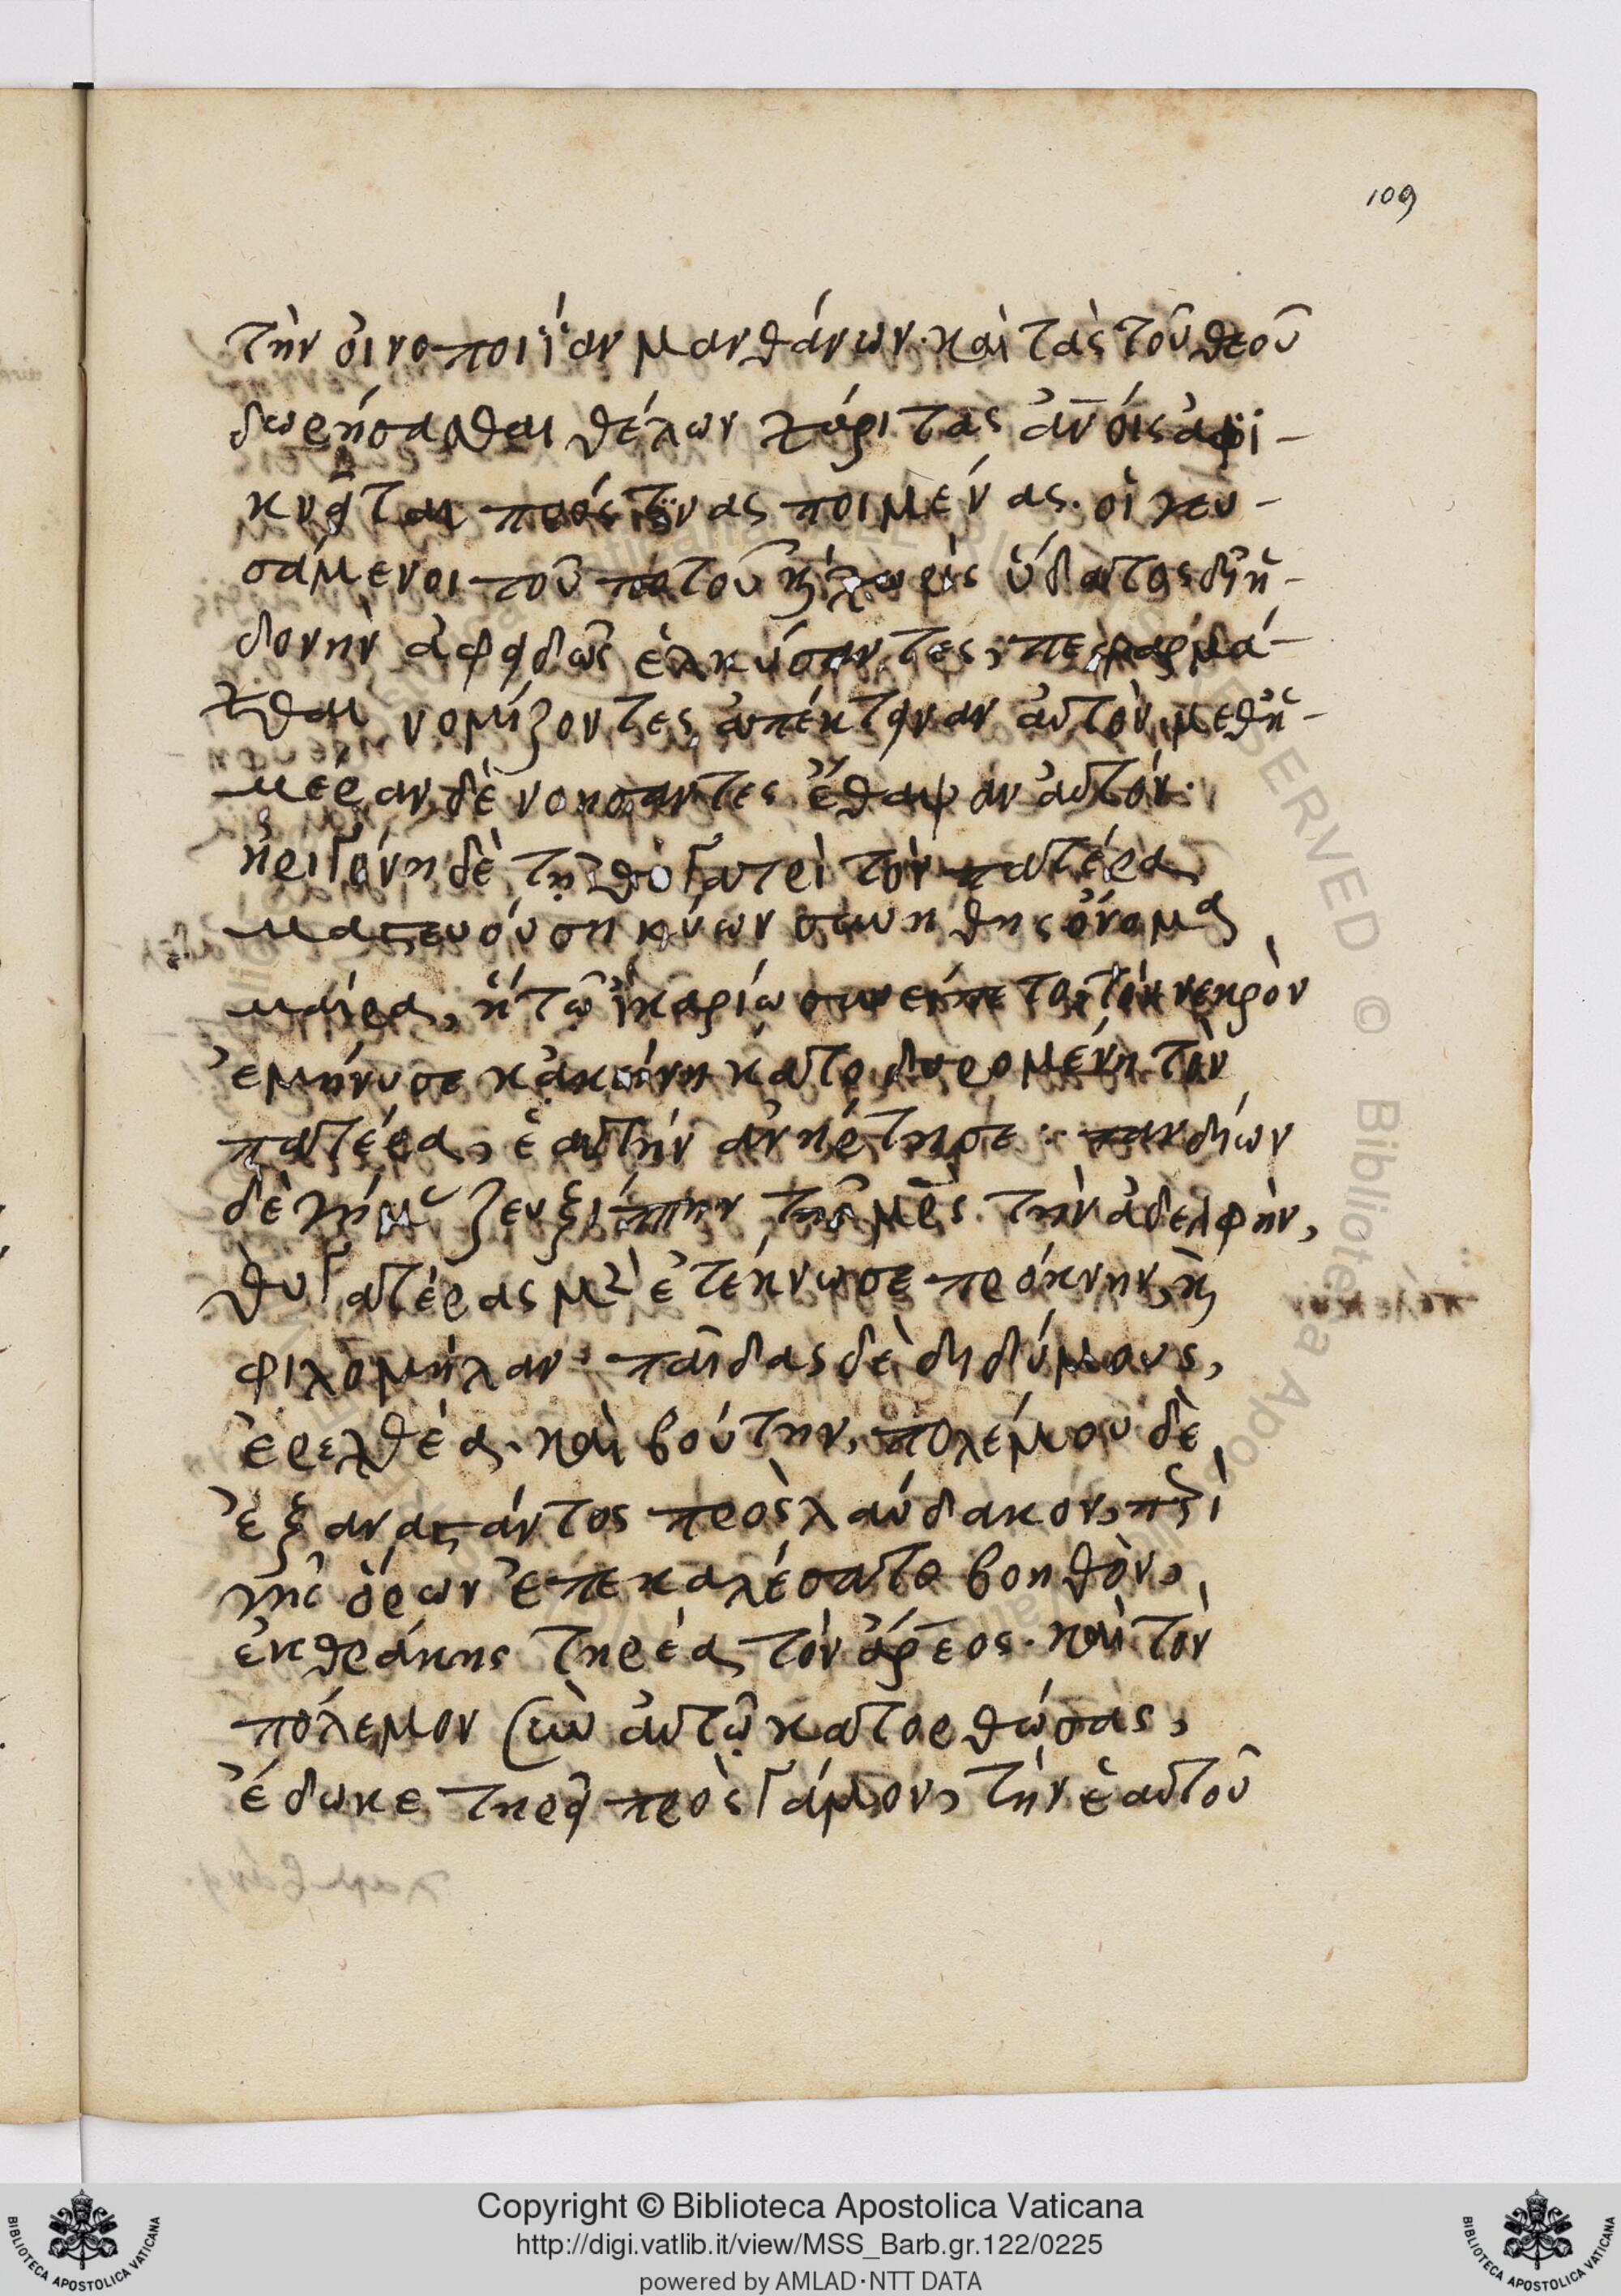 109
τὴν οἰνοποιΐαν μανθάνων· καὶ τὰς τοῦ θεοῦ
δωρήσασθαι θέλων χάριτας ἀν̅οις ἀφι-
κνεῖται πρός τϊνας ποιμένας. οἱ γευ-
σάμενοι τοῦ ποτοῦ κ̀ χωρὶς ὕδατος δι' ἡ-
δονὴν ἀφειδῶς ἑλκύσαντες, πεφαρμά-
χθαι νομίζοντες ἀπέκτειναν αὐτὸν, μεθ' ἡ-
μέραν δὲ νοησαντες ἔθαψαν αὐτόν·
ἠριγόνη δὲ τῇ θυγατρὶ τὸν πατέρα
μαστευούση κύων συνήθης ὄνομα
μαίρα, ἣ τῶ ἰκαρίω συνείπετο, τὸν νεκρὸν
ἐμήνυσε κἀκείνη κατοδυρομένη τὸν
πατέρα, ἑαυτὴν ἀνήρτησε· πανδίων
δὲ γήμας ζευξίππην τῆς μρ̅ς τὴν ἀδελφὴν,
θυγατέρας μὲν ἐτέκνωσε πρόκνην, κ̀
φιλομήλαν· παῖδας δὲ διδύμους,
ἐρεχθέα. καὶ βούτην, πολέμου δὲ
ἐξαναστάντος πρὸς λαύδακον, περὶ
γῆς ὅρων ἐπεκαλέσατο βοηθὸν,
ἐκ θράκης τηρέα τὸν ἄρεος. καὶ τὸν
πόλεμον σὺν αὐτῷ κατορθώσας,
ἔδωκε τηρεῖ πρὸς γάμον, τὴν ἑαυτοῦ
Copyright © Biblioteca Apostolica Vaticana
http://digi.vatlib.it/view/MSS_Barb.gr.122/0225
powered by AMLAD·NTT DATA